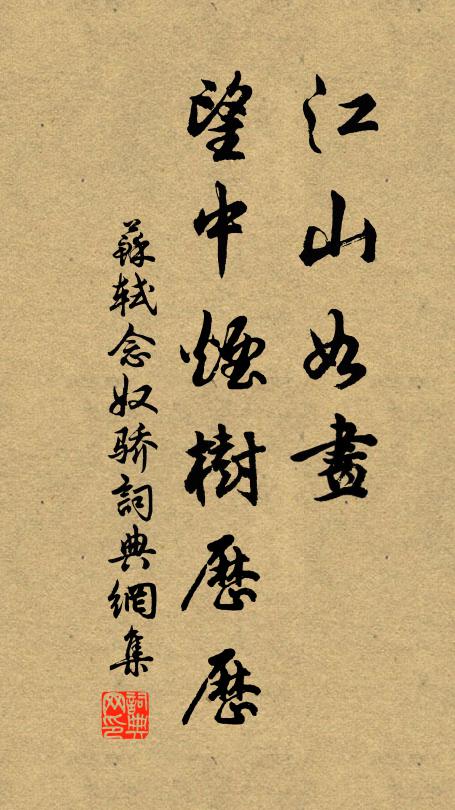 江山如畫
望中煙樹歷歷
蘇軾念奴骄詞典網集
詞典
网印